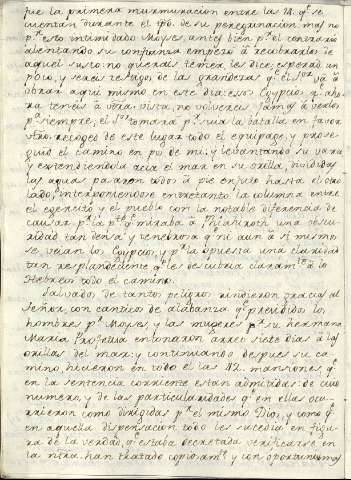 fue la primera murmuracion entre las 12. qe se
cuentan durante el tpô. de su peregrinacion, mas no
pr esto intimidado Moyses, antes bien pr el contrario
alentando su confianza empezo â recobrarlos de
aquel susto. no querais temer, les dice; esperad un
poco, y sereis testigos de las grandezas qe el Sor vâ â
obrar aqui mismo en este dia: esos Egypcios qe aho
ra teneis â vtra vista, no volvereis jamas â verlos
pa siempre, el Sor tomara pr suia la batalla en favor
vtro. Recoged de este lugar todo el equipage, y prose-
guid el camino en pos de mi; y levantando su vara
y extendiendola acia el mar en su orilla, divididas
las aguas pasaron todos â pie enjuto hasta el otro
lado, interponiendose entretanto la columna entre
el egercito y el pueblo con la notable diferencia de
causar pr la pte qe miraba â Phiahiroth una obscu
ridad tan densa y tenebrosa qe ni aun â si mismos
se veian los Egypcios, y pr la opuesta una claridad
tan resplandeciente qe les descubria claramte â los
Hebreos todo el camino.
Salvados de tantos peligros rindieron gracias al
Señor, con canticos de alabanza qe presidido los
hombres pr Moyses, y las mugeres pr su hermana
Maria Profetisa entonaron arreo siete dias â las
orillas del mar: y continuando despues su ca
mino, hicieron en todo el las 42. mansiones, qe
en la sentencia corriente estan admitidas de ese
numero, y de las particularidades qe en ellas ocu
rrieron como dirigidas pr el mismo Dios, y como qe
en aquella dispensacion todo les sucedia en figu
ra de la verdad, qe estaba decretada verificarse en
la ntra. han tratado copiosamte y con oportunas